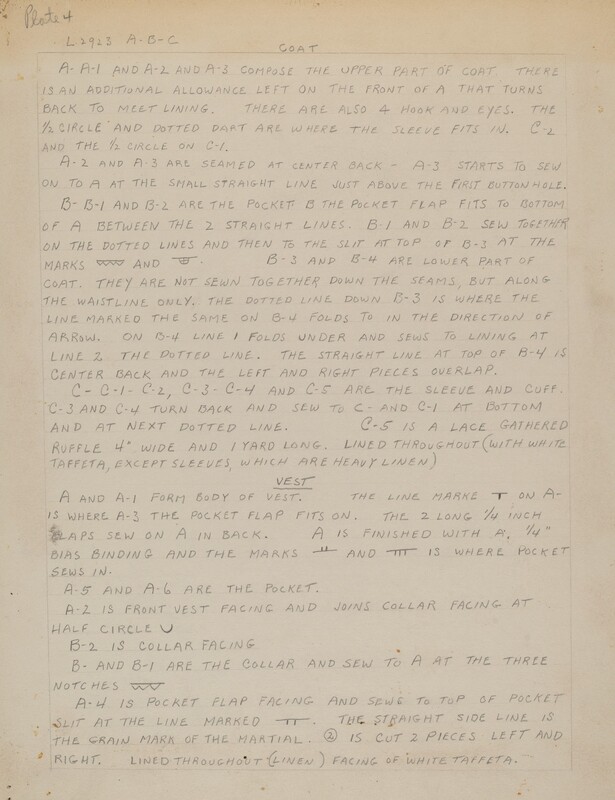 Plate 4
L2923 A-B-C
COAT
A- A-1 AND A-2 AND A-3 COMPOSE THE UPPER PART OF COAT. THERE
IS AN ADDITIONAL ALLOWANCE LEFT ON THE FRONT OF A THAT TURNS
BACK TO MEET LINING. THERE ARE ALSO 4 HOOK AND EYES. THE
1/2 CIRCLE AND DOTTED DART ARE WHERE THE SLEEVE FITS IN. C-2
AND THE 1/2 CIRCLE ON C-1.
A-2 AND A-3 ARE SEAMED AT CENTER BACK - A-3 STARTS TO SEW
ON TO A AT THE SMALL STRAIGHT LINE JUST ABOVE THE FIRST BUTTON HOLE.
B- B-1 AND B-2 ARE THE POCKET B THE POCKET FLAP FITS TO BOTTOM
OF A BETWEEN THE 2 STRAIGHT LINES. B-1 AND B-2 SEW TOGETHER
ON THE DOTTED LINES AND THEN TO THE SLIT AT TOP OF B-3 AT THE
MARKS AND . B-3 AND B-4 ARE LOWER PART OF
COAT. THEY ARE NOT SEWN TOGETHER DOWN THE SEAMS, BUT ALONG
THE WAISTLINE ONLY. THE DOTTED LINE DOWN B-3 IS WHERE THE
LINE MARKED THE SAME ON B-4 FOLDS TO IN THE DIRECTION OF
ARROW. ON B-4 LINE 1 FOLDS UNDER AND SEWS TO LINING AT
LINE 2 THE DOTTED LINE. THE STRAIGHT LINE AT TOP OF B-4 IS
CENTER BACK AND THE LEFT AND RIGHT PIECES OVERLAP.
C- C-1- C-2, C-3- C-4 AND C-5 ARE THE SLEEVE AND CUFF.
C-3 AND C-4 TURN BACK AND SEW TO C- AND C-1 AT BOTTOM
AND AT NEXT DOTTED LINE. C-5 IS A LACE GATHERED
RUFFLE 4" WIDE AND 1 YARD LONG. LINED THROUGHOUT (WITH WHITE
TAFFETA, EXCEPT SLEEVES, WHICH ARE HEAVY LINEN)
VEST
A AND A-1 FORM BODY OF VEST. THE LINE MARKE ON A-
IS WHERE A-3 THE POCKET FLAP FITS ON. THE 2 LONG 1/4 INCH
LAPS SEW ON A IN BACK. A IS FINISHED WITH A, 1/4"
BIAS BINDING AND THE MARKS AND IS WHERE POCKET
SEWS IN.
A-5 AND A-6 ARE THE POCKET.
A-2 IS FRONT VEST FACING AND JOINS COLLAR FACING AT
HALF CIRCLE
B-2 IS COLLAR FACING
B- AND B-1 ARE THE COLLAR AND SEW TO A AT THE THREE
NOTCHES
A-4 IS POCKET FLAP FACING AND SEWS TO TOP OF POCKET
SLIT AT THE LINE MARKED . THE STRAIGHT SIDE LINE IS
THE GRAIN MARK OF THE MARTIAL. ② IS CUT 2 PIECES LEFT AND
RIGHT. LINED THROUGHOUT (LINEN) FACING OF WHITE TAFFETA.